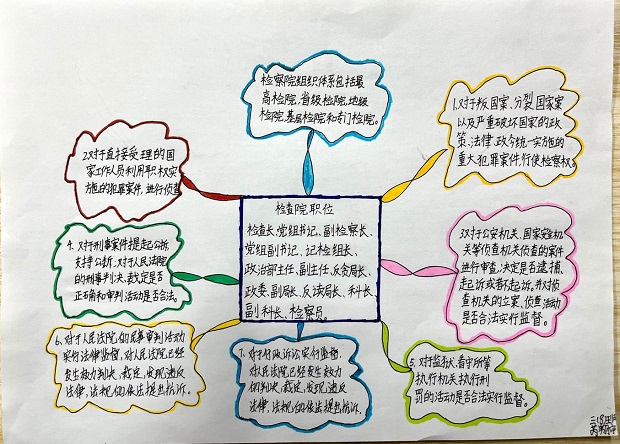 检察院组织体系包括最
高检院、省级检院、地级
检院、基层检院和专门检院。
1.对于叛国案、分裂国家案
以及严重破坏国家的政
策、法律、政令统一实施的
重大犯罪案件,行使检察权
2.对于直接受理的国
家工作人员利用职权实
施的犯罪案件,进行侦查
检查院职位
检查长、党组书记、副检察长、
党组副书记、记检组长、
政治部主任、副主任、反贪局长、
政委、副局长、反渎局长、科长、
副科长、检察员。
3.对于公安机关、国家安全机
关等侦查机关侦查的案件
进行审查,决定是否逮捕、
起诉或者不起诉,并对侦
查机关的立案、侦查活动
是否合法实行监督。
4.对于刑事案件提起公诉,
支持公诉,对于人民法院
的刑事判决、裁定是否
正确和审判活动是否合法。
5.对于监狱、看守所等
执行机关执行刑
罚的活动是否合法实行监督。
6.对于人民法院的民事审判活动
实行法律监督,对人民法院已经
发生效力判决、裁定,发现违反
法律、法规的依法提出抗诉。
7.对于行政诉讼实行监督。
对人民法院已经发生效力
的判决、裁定,发现违反
法律、法规的依法提出抗诉。